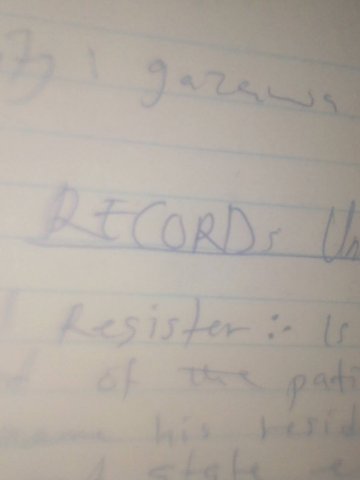 gazawa
RECORDs Un
Resister :- Is
of the pati
name his resid
state e